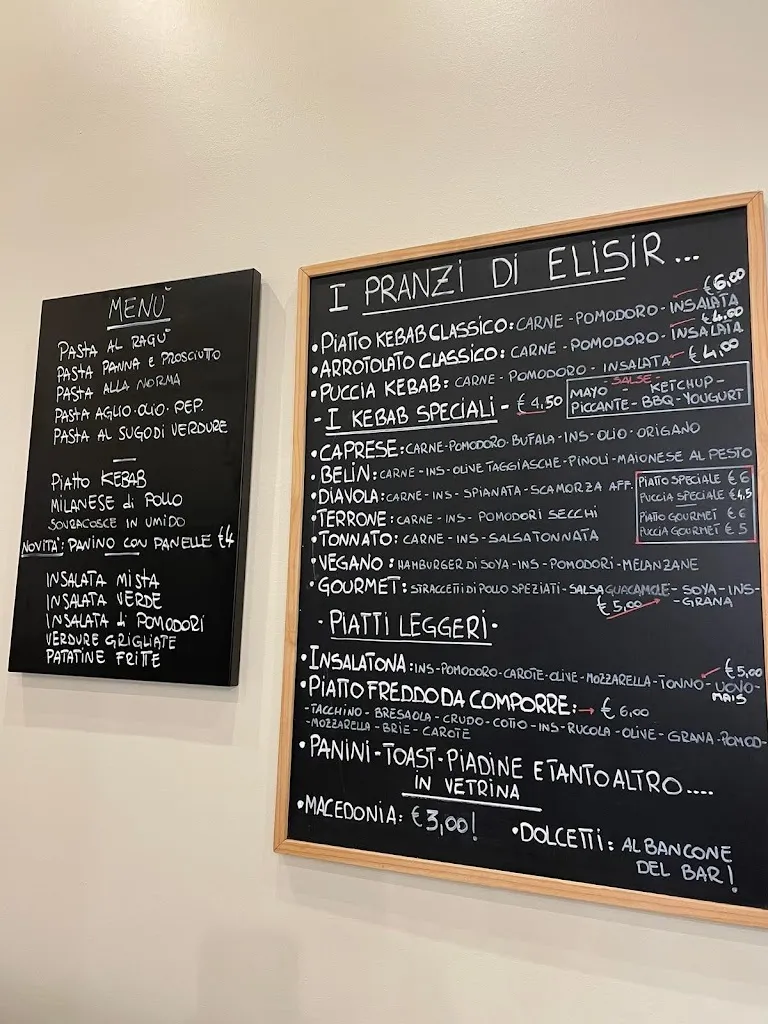 MENÙ
PASTA AL RAGÙ
PASTA PANNA E PROSCIUTTO
PASTA ALLA NORMA
PASTA AGLIO-OLIO-PEP.
PASTA AL SUGO DI VERDURE
PIATTO KEBAB
MILANESE di POLLO
SOVRACOSCE IN UMIDO
NOVITA': PANINO CON PANELLE €4
INSALATA MISTA
INSALATA VERDE
INSALATA di POMODORI
VERDURE GRIGLIATE
PATATINE FRITTE
I PRANZI DI ELISIR...
• PIATTO KEBAB CLASSICO: CARNE - POMODORO - INSALATA €6,00
• ARROTOLATO CLASSICO: CARNE - POMODORO - INSALATA €4,00
• PUCCIA KEBAB: CARNE - POMODORO - INSALATA €4,00
- I KEBAB SPECIALI - €4,50
- SALSE -
MAYO - KETCHUP -
PICCANTE - BBQ - YOUGURT
• CAPRESE: CARNE-POMODORO-BUFALA-INS-OLIO-ORIGANO
• BELIN: CARNE-INS-OLIVE TAGGIASCHE-PINOLI-MAIONESE AL PESTO
• DIAVOLA: CARNE-INS-SPIANATA-SCAMORZA AFF.
• TERRONE: CARNE-INS-POMODORI SECCHI
• TONNATO: CARNE-INS-SALSA TONNATA
PIATTO SPECIALE €6
PUCCIA SPECIALE €4,5
PIATTO GOURMET €6
PUCCIA GOURMET €5
• VEGANO: HAMBURGER DI SOYA-INS-POMODORI-MELANZANE
• GOURMET: STRACCETTI DI POLLO SPEZIATI-SALSA GUACAMOLE-SOYA-INS-
-GRANA
€5,00
- PIATTI LEGGERI -
• INSALATONA: INS-POMODORO-CAROTE-OLIVE-MOZZARELLA-TONNO-UOVO- €5,00
MAIS
• PIATTO FREDDO DA COMPORRE: → €6,00
-TACCHINO-BRESAOLA-CRUDO-COTTO-INS-RUCOLA-OLIVE-GRANA-POMOD-
-MOZZARELLA-BRIE-CAROTE
• PANINI-TOAST-PIADINE E TANTO ALTRO....
IN VETRINA
• MACEDONIA: €3,00!
• DOLCETTI: AL BANCONE
DEL BAR!